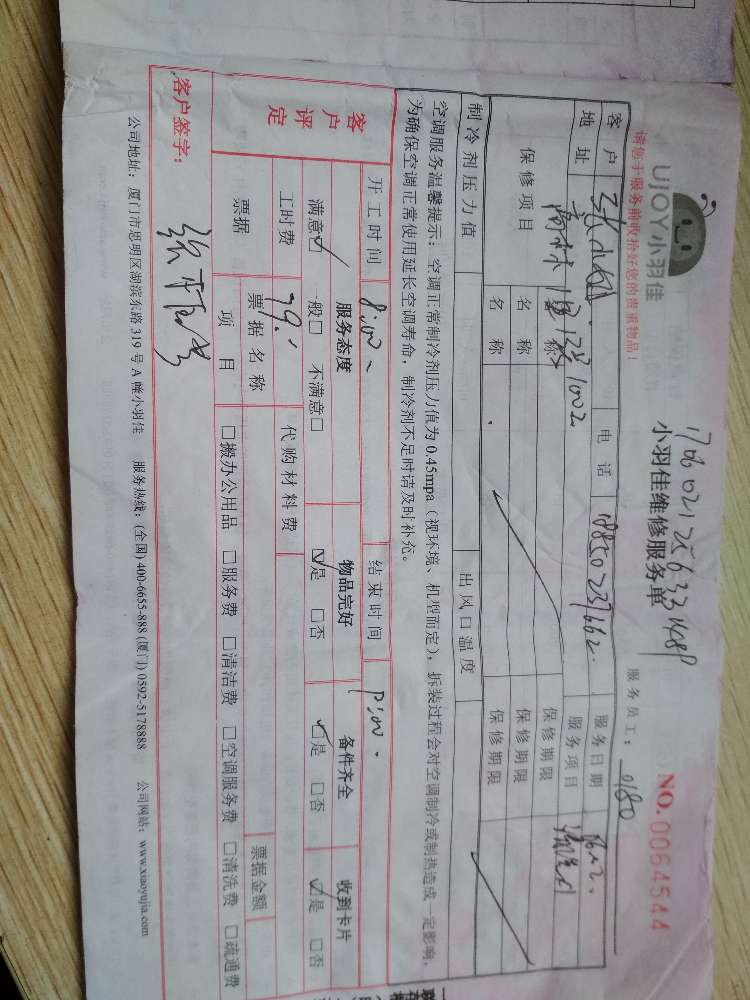 UJOY小羽佳
请您于服务前收拾好您的贵重物品!
小羽佳维修服务单
NO.0064544
服务员工: 0180
客户 电话 服务日期
地址 1002 服务项目
保修项目 名称 保修期限
名称 保修期限
名称 保修期限
制冷剂压力值 出风口温度
空调服务温馨提示:空调正常制冷剂压力值为0.45mpa(视环境、机型而定),拆装过程会对空调制冷或制热造成一定影响,
为确保空调正常使用延长空调寿命,制冷剂不足时请及时补充。
客户评定
开工时间 8:00 结束时间
服务态度 物品完好 备件齐全 收到卡片
满意☑ 一般□ 不满意□ ☑是 □否 ☑是 □否 ☑是 □否
工时费 79. 代购材料费
票据 票据名称 票据金额
项目 □搬办公用品 □服务费 □清洁费 □空调服务费 □清洗费 □疏通费
客户签字:
公司地址:厦门市思明区湖滨东路319号A幢小羽佳 服务热线:(全国)400-6655-888(厦门)0592-5178888 公司网站:www.xiaoyujia.com